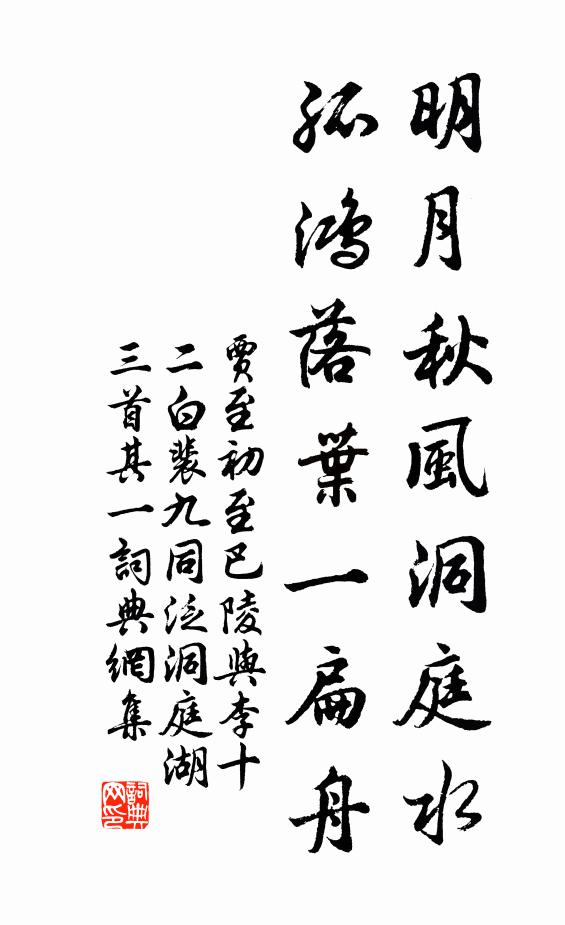 明月秋風洞庭水
孤鴻落葉一扁舟
賈至初至巴陵與李十
二白裴九同泛洞庭湖
三首其一詞典網集
詞典
网印